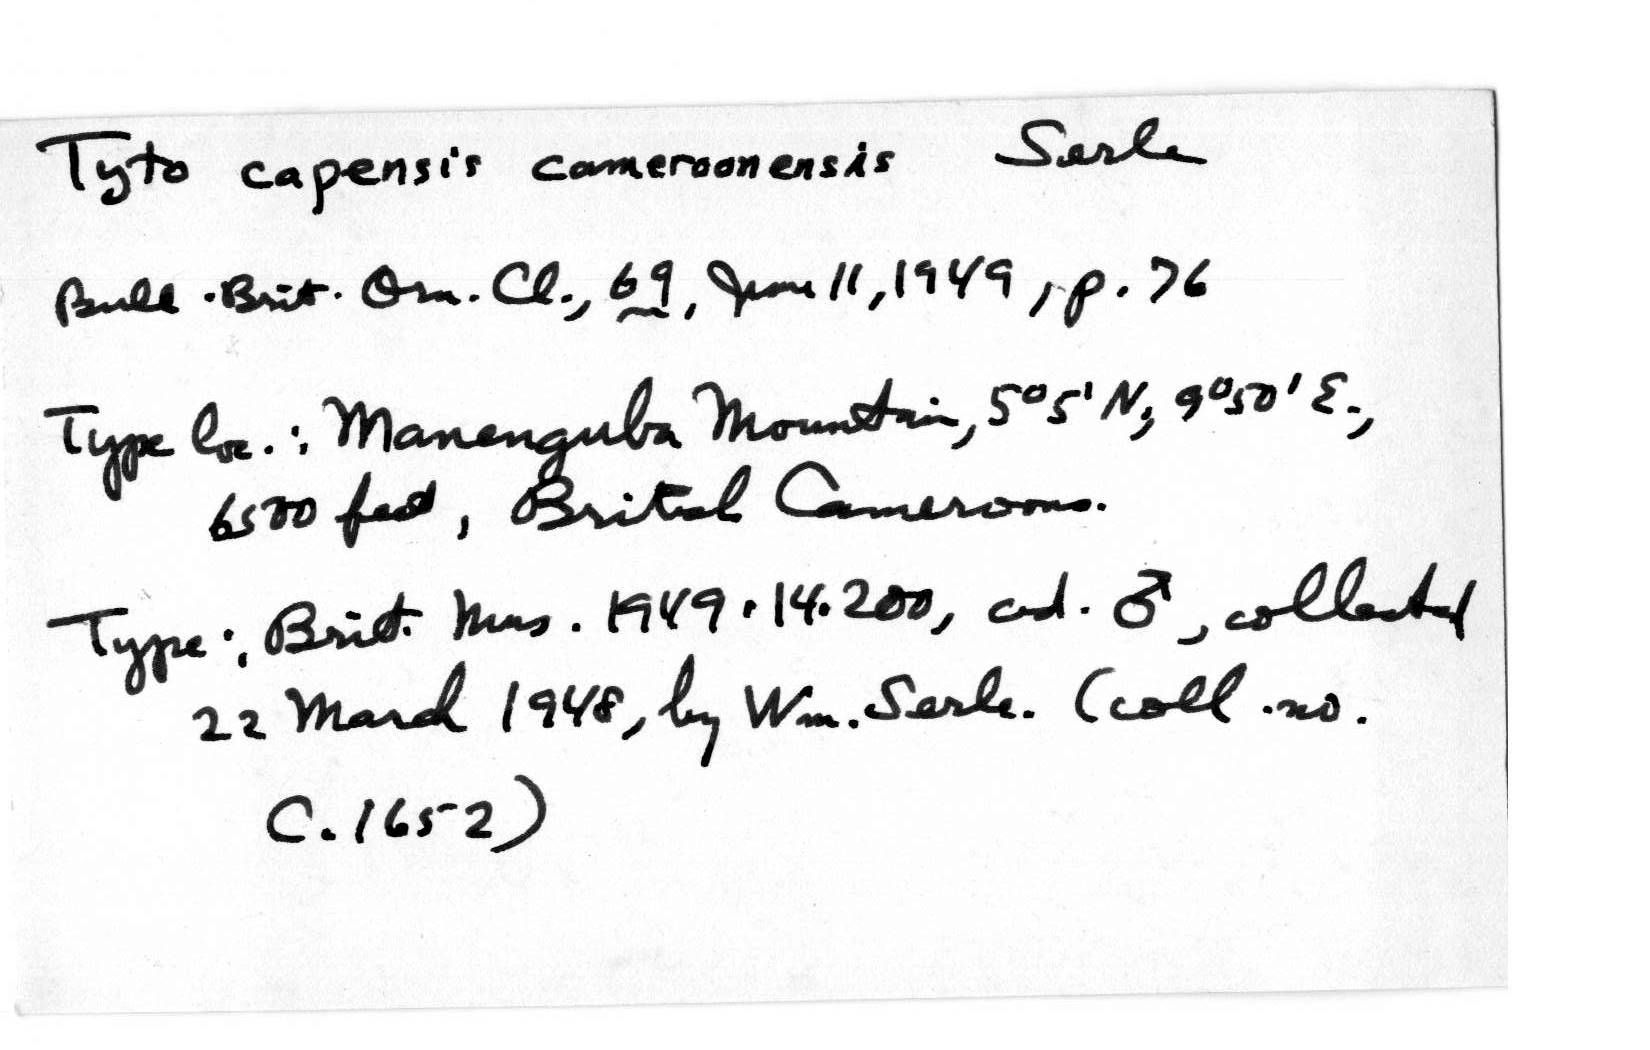 Tyto capensis cameroonensis Serle
Bull. Brit. Orn. Cl., 69, June 11, 1949, p. 76
Type loc.: Manenguba Mountain, 5°5' N, 9°50' E.,
6500 feet, British Cameroons.
Type: Brit. Mus. 1949.14.200, ad. ♂, collected
22 March 1948, by Wm. Serle. (coll. no.
C.1652)